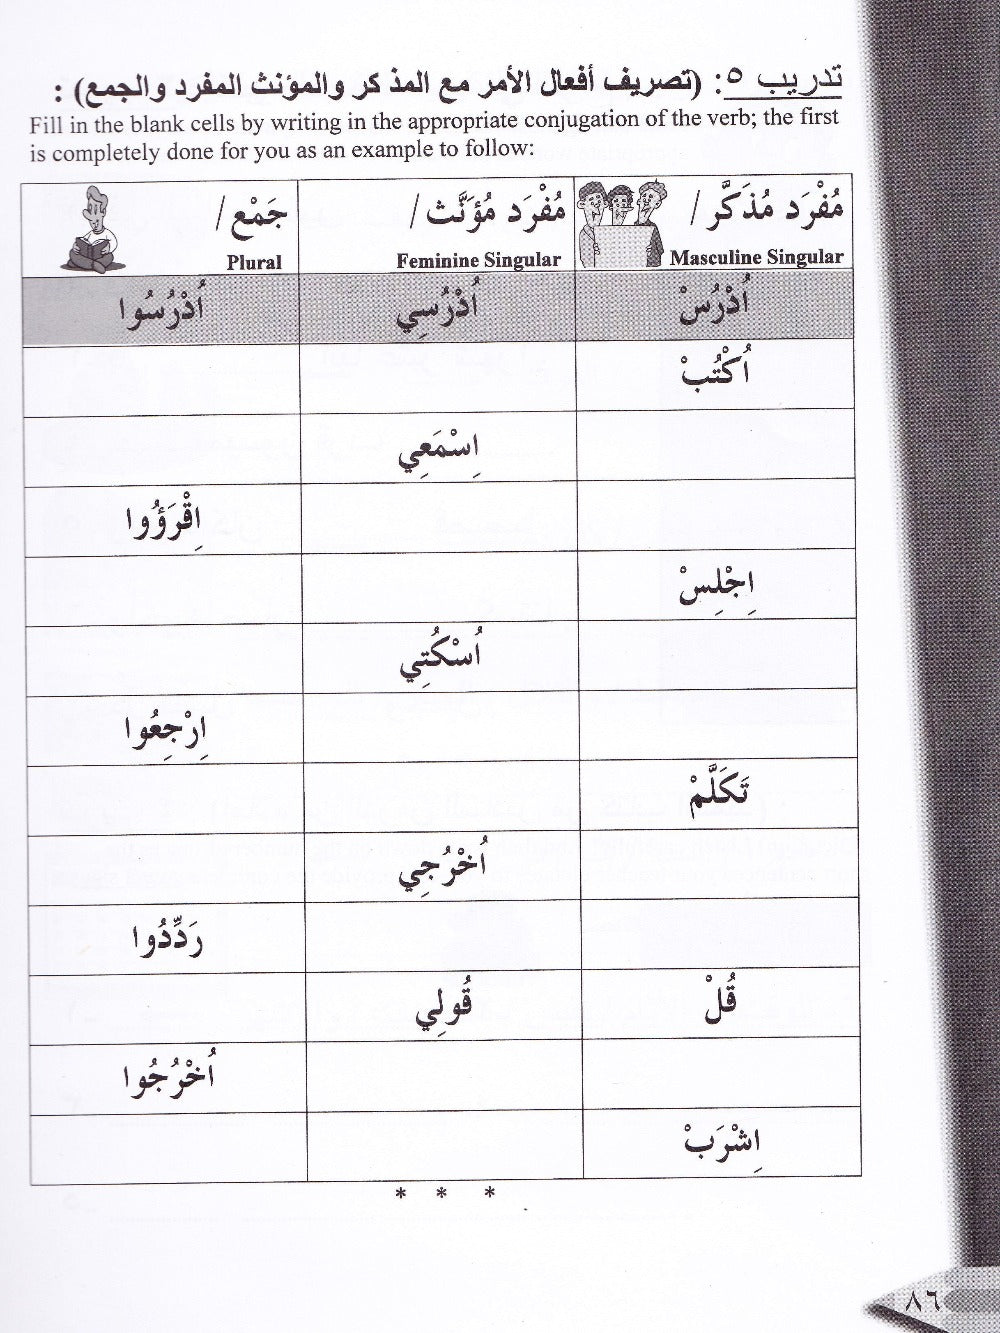 تدريب ٥: (تصريف أفعال الأمر مع المذكر والمؤنث المفرد والجمع) :
Fill in the blank cells by writing in the appropriate conjugation of the verb; the first
is completely done for you as an example to follow:
مُفْرَد مُذَكَّر / مُفْرَد مُؤَنَّث / جَمْع /
Masculine Singular Feminine Singular Plural
اُدْرُسْ اُدْرُسِي اُدْرُسُوا
اُكْتُبْ
اِسْمَعِي
اِقْرَؤُوا
اِجْلِسْ
اُسْكُتِي
اِرْجِعُوا
تَكَلَّمْ
اُخْرُجِي
رَدِّدُوا
قُلْ قُولِي
اُخْرُجُوا
اِشْرَبْ
* * *
٨٦